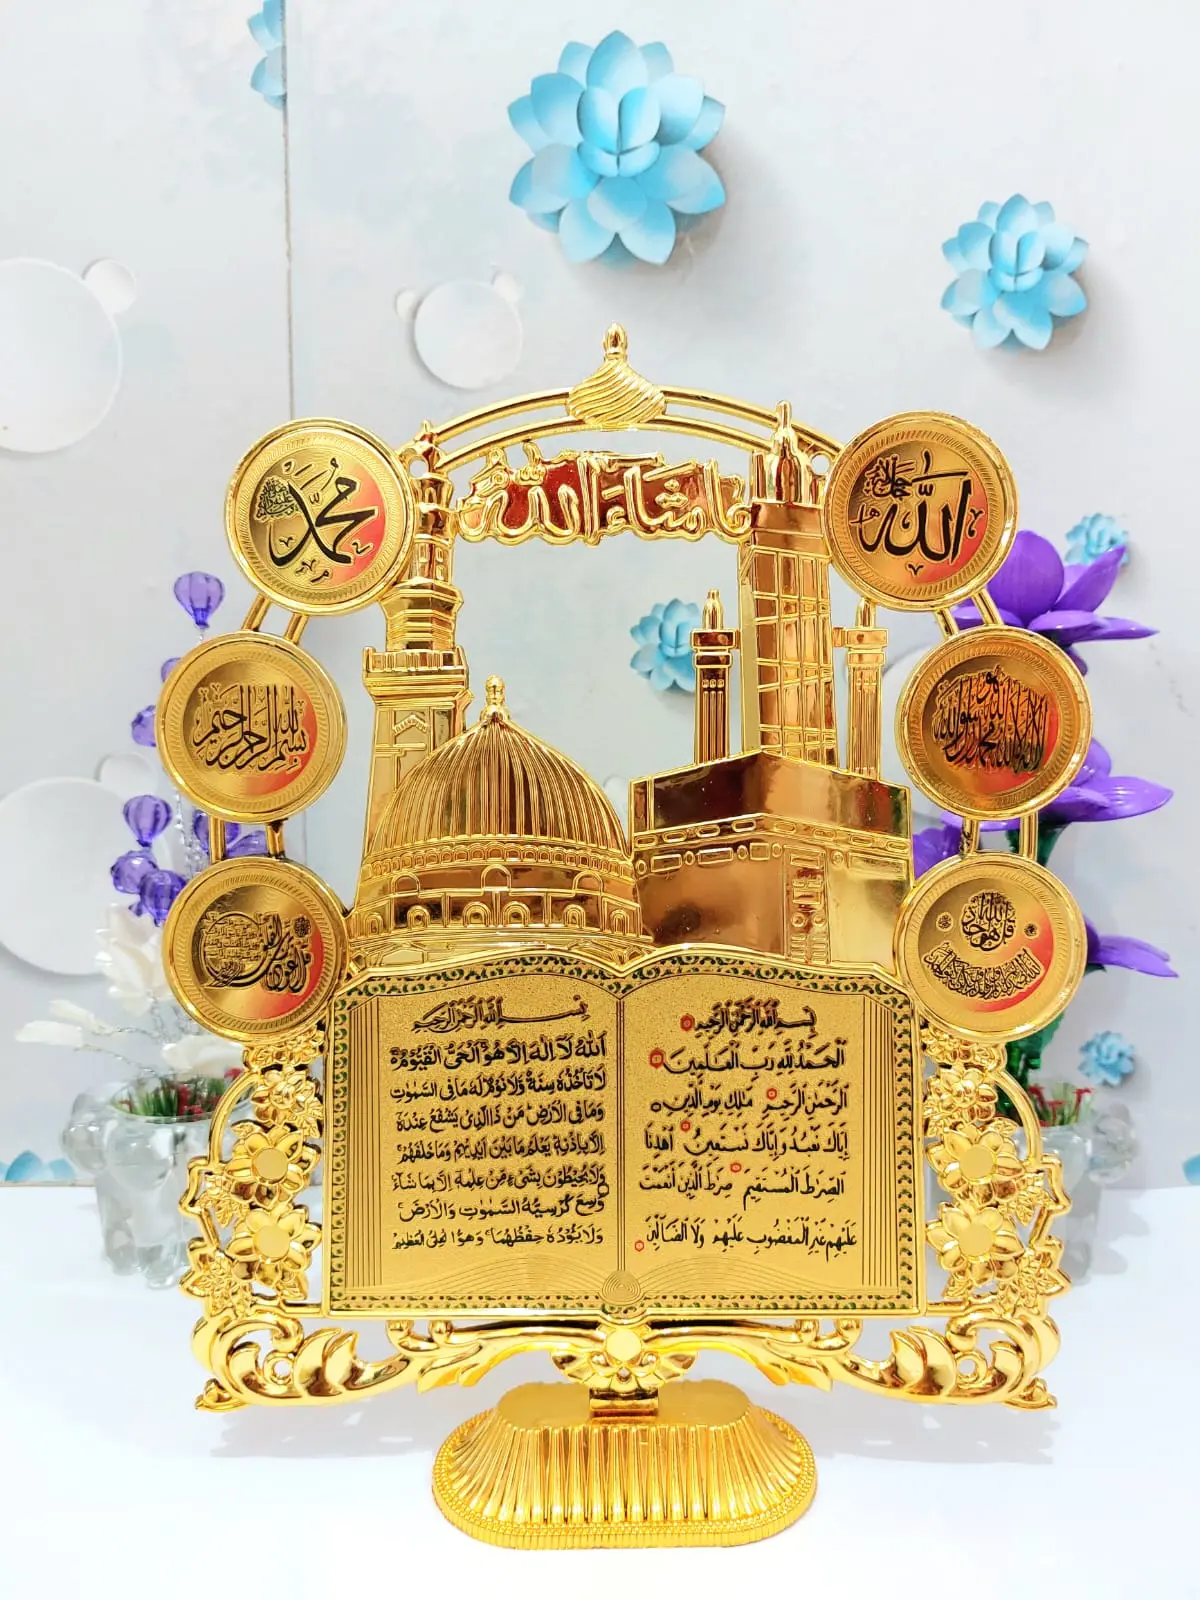 ما شاء الله
الله
جل جلاله
محمد
لا اله الا الله محمد رسول الله
بسم الله الرحمن الرحيم
قل هو الله احد
قل اعوذ برب الفلق
بِسْمِ اللهِ الرَّحْمٰنِ الرَّحِيْمِ
اَلْحَمْدُ لِلّٰهِ رَبِّ الْعٰلَمِيْنَ
الرَّحْمٰنِ الرَّحِيْمِ مٰلِكِ يَوْمِ الدِّيْنِ
اِيَّاكَ نَعْبُدُ وَاِيَّاكَ نَسْتَعِيْنُ اهْدِنَا
الصِّرَاطَ الْمُسْتَقِيْمَ صِرَاطَ الَّذِيْنَ اَنْعَمْتَ
عَلَيْهِمْ غَيْرِ الْمَغْضُوْبِ عَلَيْهِمْ وَلَا الضَّآلِّيْنَ
بِسْمِ اللهِ الرَّحْمٰنِ الرَّحِيْمِ
اَللهُ لَا اِلٰهَ اِلَّا هُوَ اَلْحَيُّ الْقَيُّوْمُ
لَا تَأْخُذُهٗ سِنَةٌ وَّلَا نَوْمٌ لَهٗ مَا فِى السَّمٰوٰتِ
وَمَا فِى الْاَرْضِ مَنْ ذَا الَّذِيْ يَشْفَعُ عِنْدَهٗ
اِلَّا بِاِذْنِهٖ يَعْلَمُ مَا بَيْنَ اَيْدِيْهِمْ وَمَا خَلْفَهُمْ
وَلَا يُحِيْطُوْنَ بِشَيْءٍ مِّنْ عِلْمِهٖ اِلَّا بِمَا شَآءَ
وَسِعَ كُرْسِيُّهُ السَّمٰوٰتِ وَالْاَرْضَ
وَلَا يَؤُدُهٗ حِفْظُهُمَا وَهُوَ الْعَلِيُّ الْعَظِيْمُ